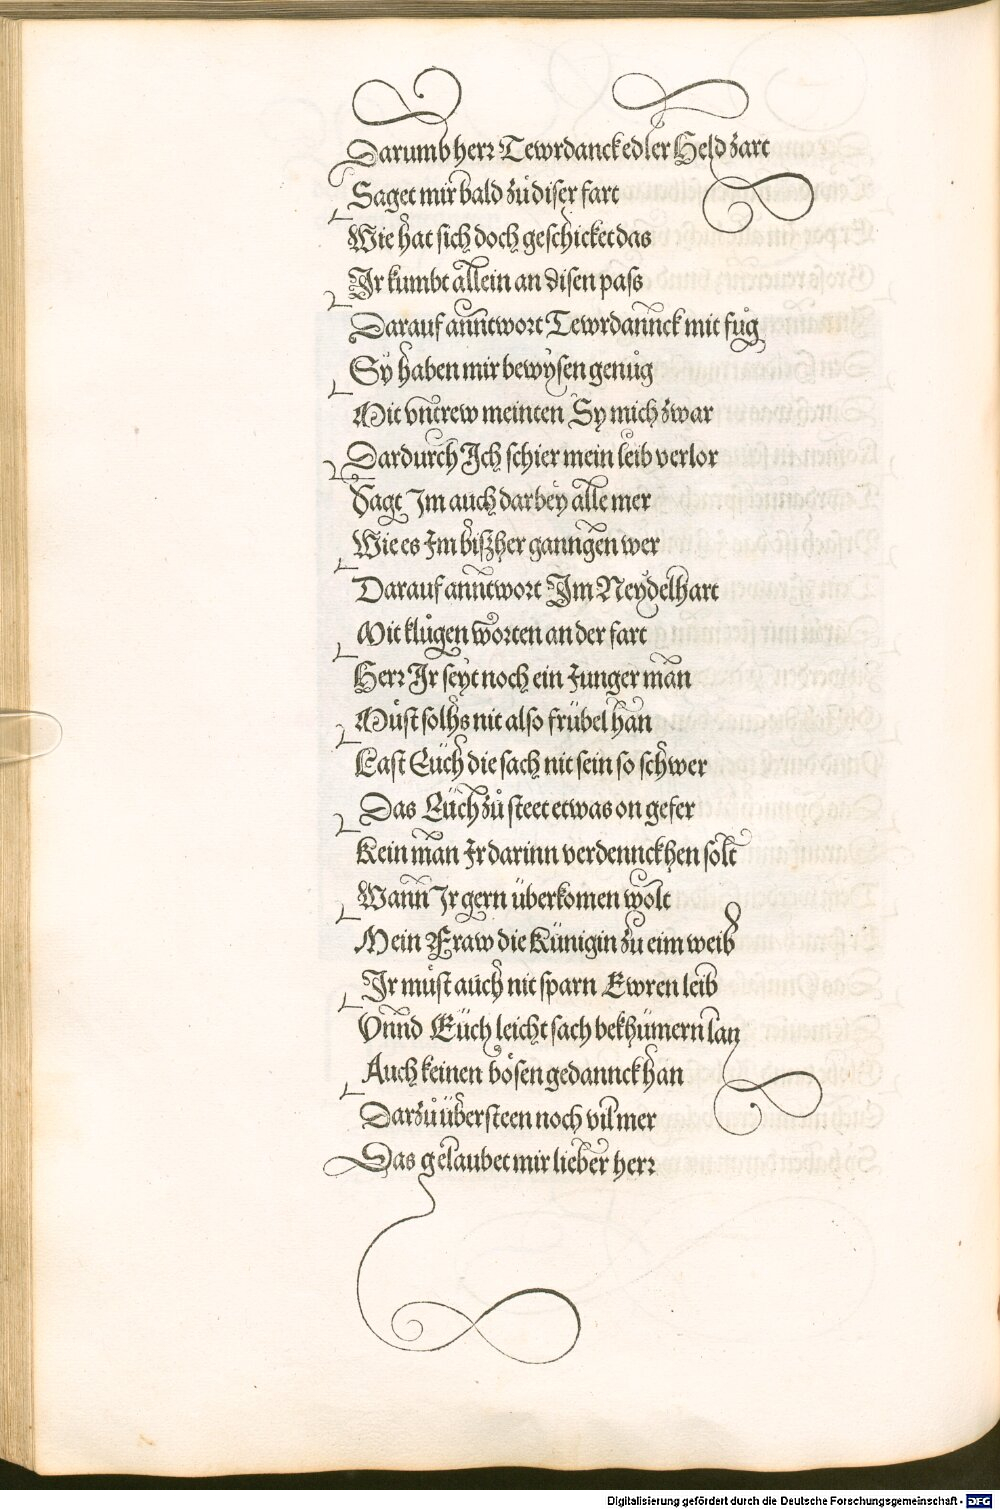 Darumb herr Tewrdanck edler Held zart
Saget mir bald zů diser fart
Wie hat sich doch geschicket das
Ir kumbt allein an disen pass
Darauf anntwort Tewrdannck mit fůg
Sÿ haben mir bewÿsen genůg
Mit vntrew meinten Sy mich zwar
Dardurch Ich schier mein leib verlor
Sagt Im auch darbeÿ alle mer
Wie es Im bißher ganngen wer
Darauf anntwort Im Neÿdelhart
Mit klůgen worten an der fart
Herr Ir seyt noch ein Junger man
Můst solhs nit also frübel han
Last Eüch die sach nit sein so schwer
Das Eüch zů steet etwas on gefer
Kein man Ir darinn verdennckhen solt
Wann Ir gern überkomen wolt
Mein Fraw die Künigin zu eim weib
Ir müst auch nit sparn Ewren leib
Vnnd Eüch leicht sach bekhümern lan
Auch keinen bösen gedannck han
Darzů übersteen noch vil mer
Das gelaubet mir lieber herr
Digitalisierung gefördert durch die Deutsche Forschungsgemeinschaft - DFG